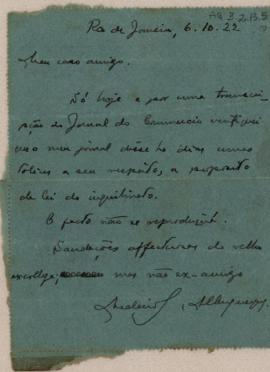 AQ 3.2.13.5
Rio de Janeiro, 6.10.22
Meu caro amigo.
Só hoje e por uma transcri-
pção do Jornal do Commercio verifiquei
que o meu jornal disse ha dias umas
tolices a seu respeito, a proposito
da lei do inquilinato.
O facto não se reproduzirá.
Saudações affectuosas do velho
excollega, mas não ex-amigo
Medeiros Albuquerque